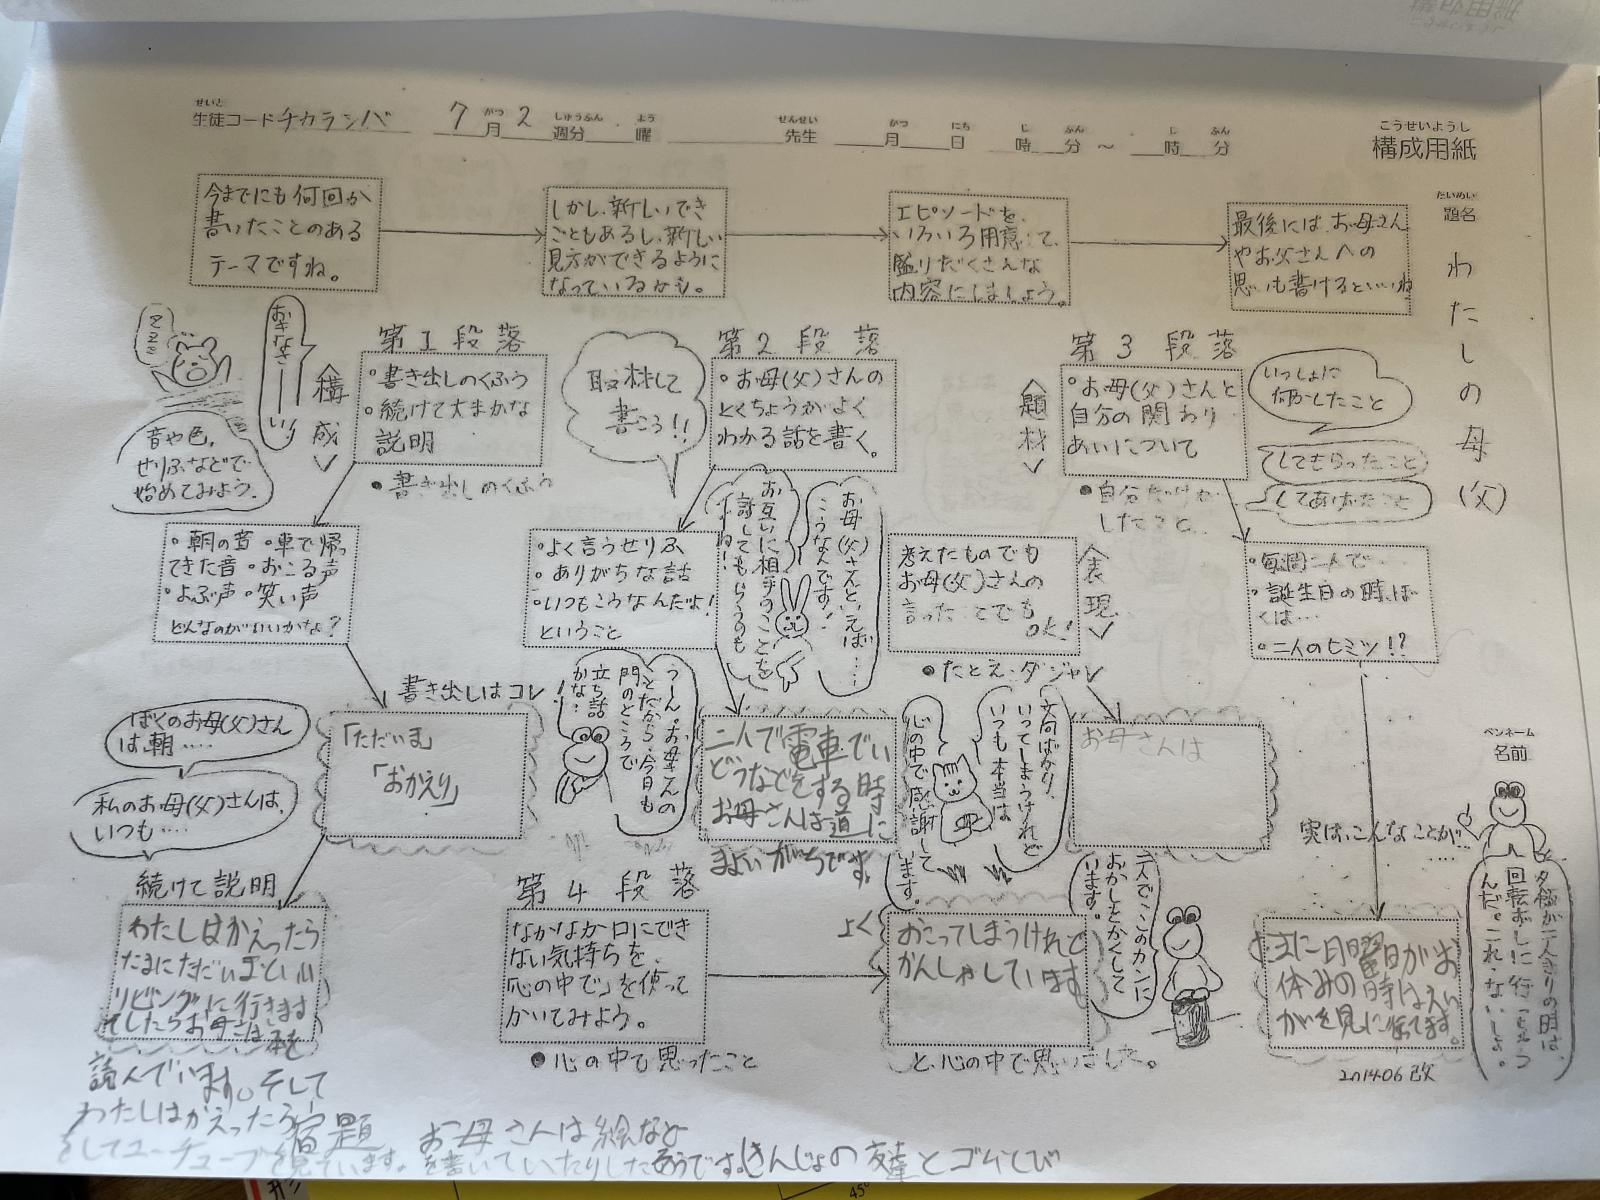 せいと
生徒コード チカラシバ 7月2週分 曜 先生 月 日 時 分 ～ 時 分
こうせいようし
構成用紙
だいめい
題名
わたしの母(父)
今までにも何回か
書いたことのある
テーマですね。
しかし、新しいでき
ごともあるし、新しい
見方ができるように
なっているかも。
エピソードを、
いろいろ用意して、
盛りだくさんな
内容にしましょう。
最後には、お母さん
やお父さんへの
思いも書けるといいね
おきなさーーい
〈構成〉
音や色、
せりふなどで
始めてみよう。
第1段落
・書き出しのくふう
・続けて大まかな
説明
●書き出しのくふう
・朝の音 ・車で帰っ
てきた音 ・おこる声
・よぶ声 ・笑い声
どんなのがいいかな？
書き出しはコレ！
「ただいま」
「おかえり」
ぼくのお母(父)さん
は、朝‥‥
私のお母(父)さんは、
いつも‥‥
続けて説明
わたしはかえったら
たまにただいまといい
リビングに行きます
そしたらお母さんは本を
読んでいます。そして
わたしはかえったら宿題
をしてユーチューブを見ています。
お母さんは絵など
を書いていたりしたそうです。きんじょの友達とゴムとび
取材して
書こう!!
第2段落
・お母(父)さんの
とくちょうがよく
わかる話を書く。
・よく言うせりふ
・ありがちな話
・いつもこうなんだよ！
ということ
お互いに相手のことを
話してもらうのも
いいね！
お母(父)さんといえば‥‥
こうなんです！
うーん。お母さんの
ことだから、今日も
門のところで
立ち話
かな？
二人で電車でい
どうなどをする時
お母さんは道に
まよいがちです。
〈題材〉
第3段落
・お母(父)さんと
自分の関わり
あいについて
いっしょに
何かしたこと
してもらったこと
してあげたこと
●自分だけが
したこと
考えたものでも
お母(父)さんの
言ったことでも
OK！
〈表現〉
●たとえ・ダジャレ
・毎週二人で‥‥
・誕生日の時、ぼ
くは‥‥
・二人のヒミツ!?
お母さんは
文句ばかり、
いってしまうけれど
いつも本当は
心の中で感謝して
います。
実は、こんなことが‥
ペンネーム
名前
夕飯が二人きりの時は、
回転ずしに行っちゃう
んだ。これ、ないしょ。
主に日曜日がお
休みの時はえい
がを見に行ってます。
第4段落
なかなか口にでき
ない気持ちを、
「心の中で」を使って
かいてみよう。
●心の中で思ったこと
よく
おこってしまうけれど
かんしゃしています
と、心の中で思いました。
二人でこのカンに
おかしをかくして
います。
201406改